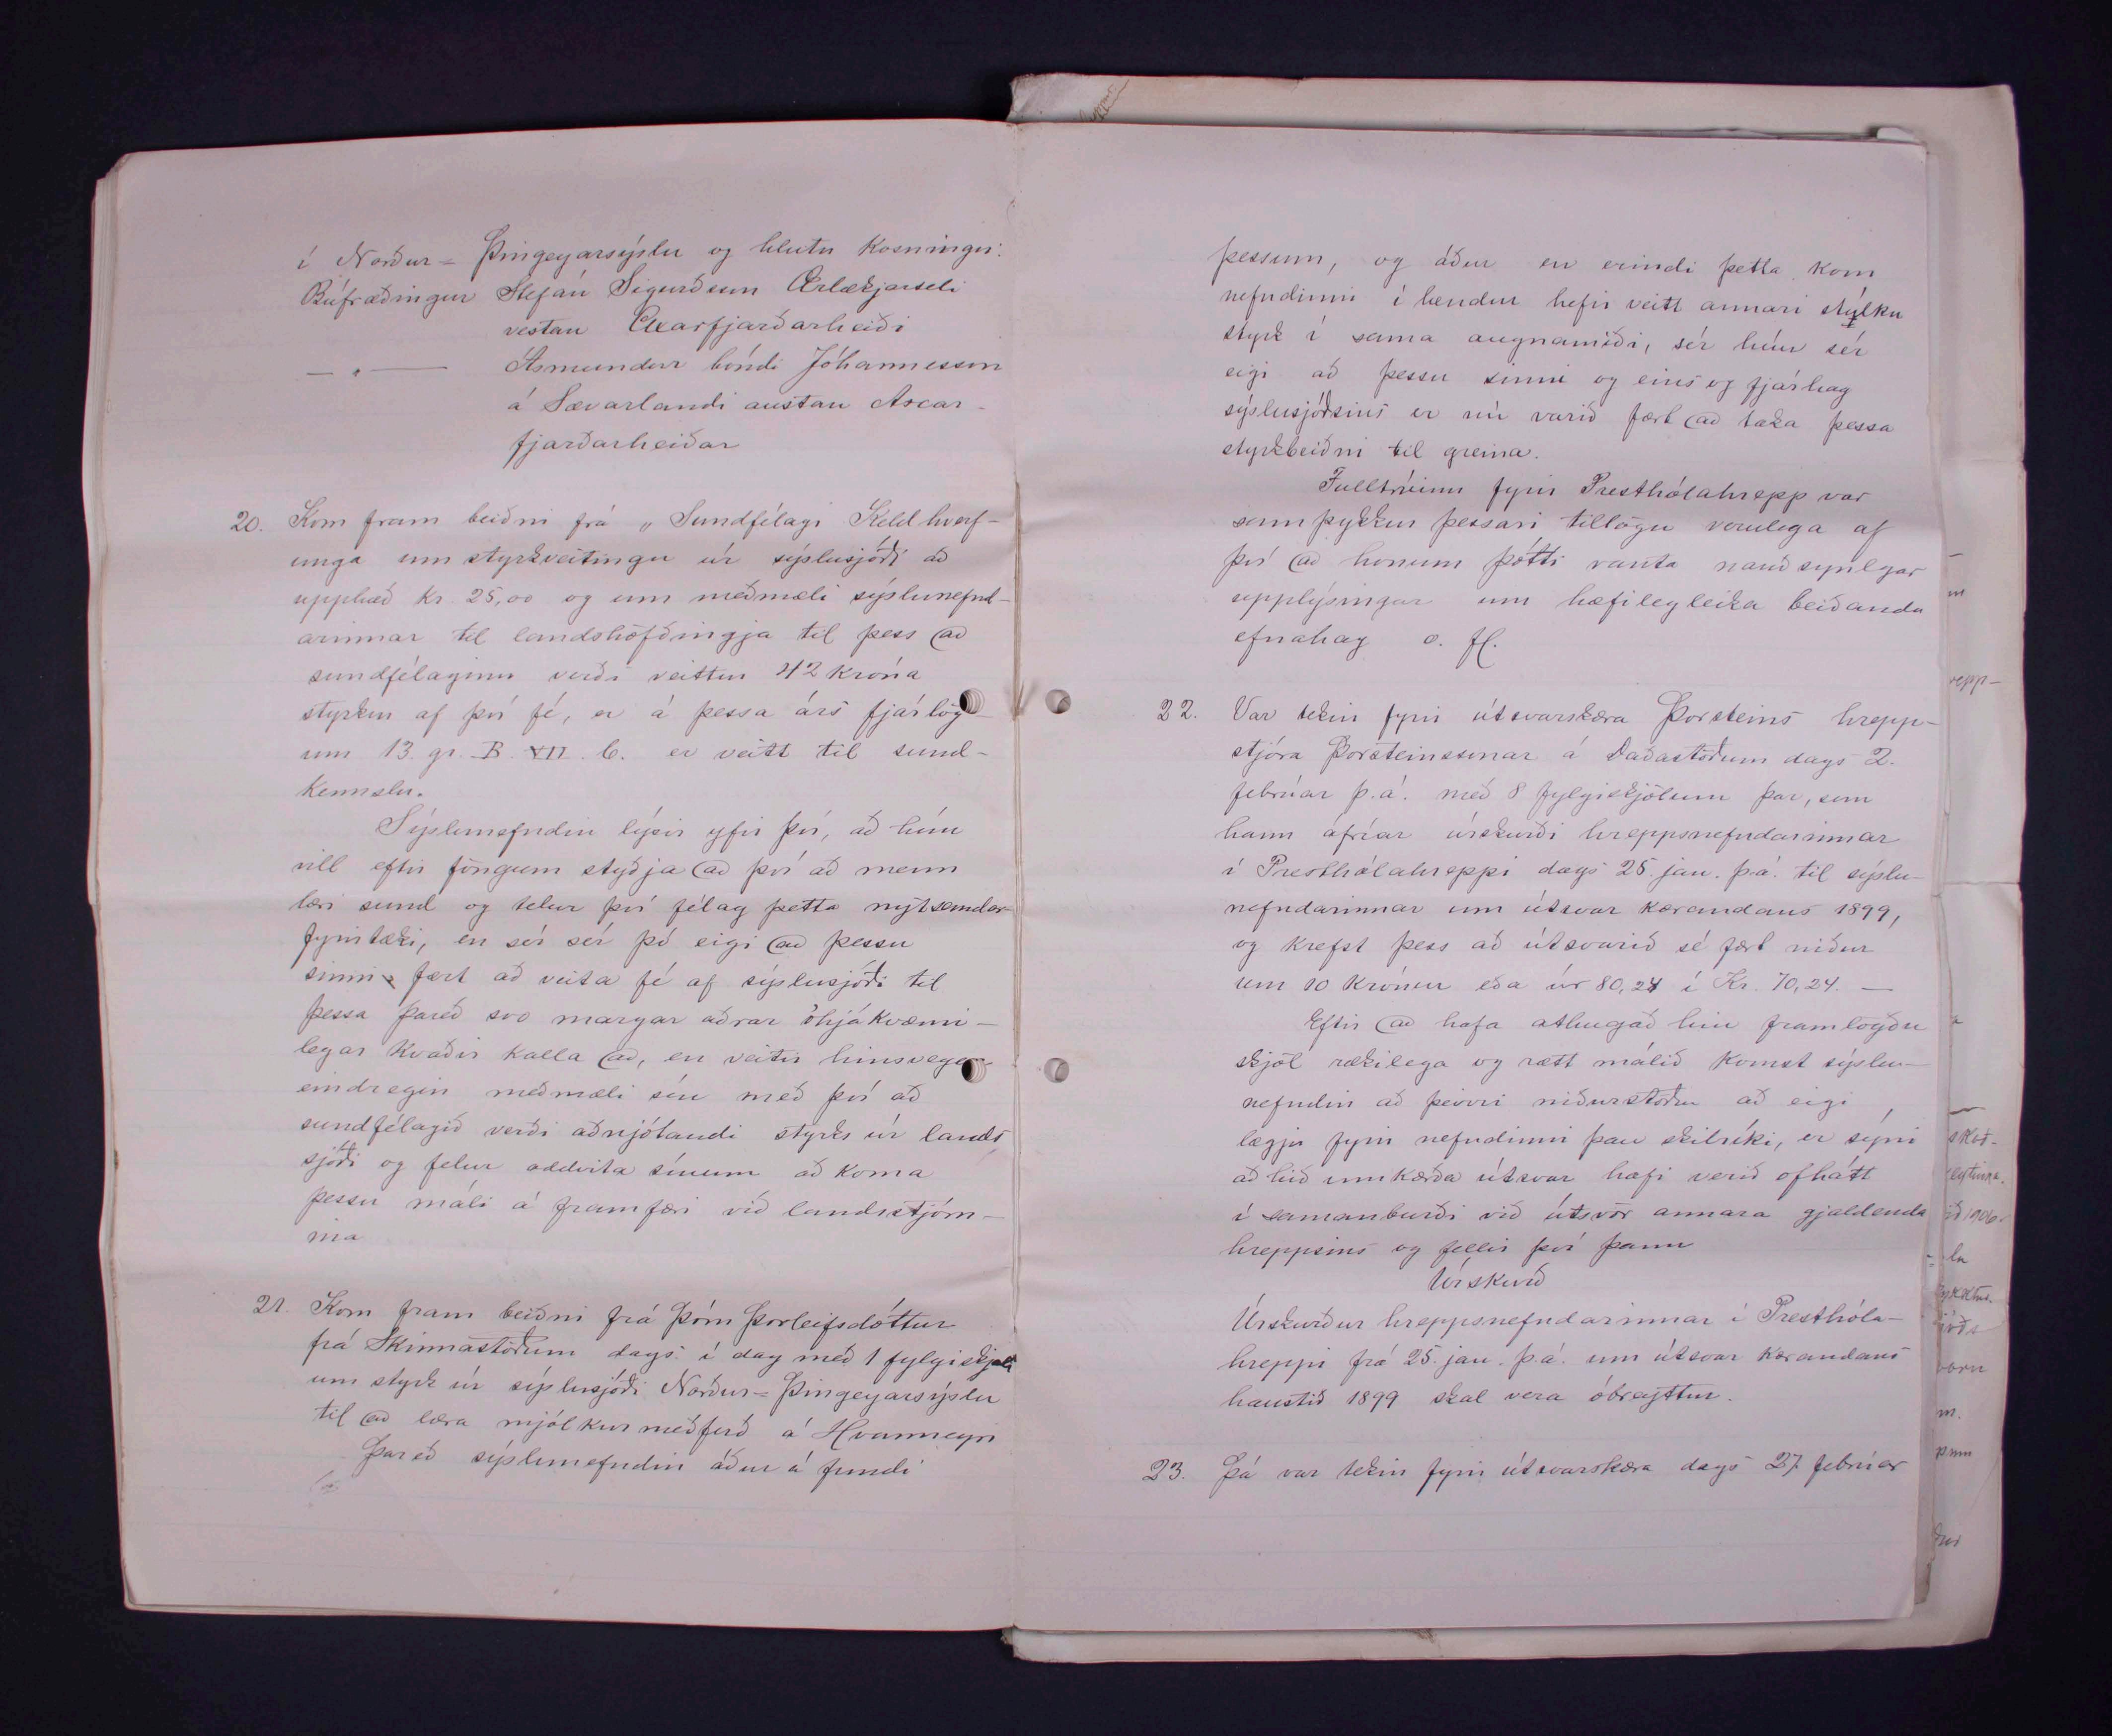 í Norður-Þingeyarsýslu og hlutu kosningu:
Búfræðingur Stefán Sigurðsson Ærlækjarseli
vestan Axarfjarðarheiði
— „ — Ásmundur bóndi Jóhannesson
á Sævarlandi austan Axar-
fjarðarheiðar
20. Kom fram beiðni frá „Sundfélagi Keldhverf-
unga um styrkveitingu úr sýslusjóði að
upphæð kr. 25,00 og um meðmæli sýslunefnd-
arinnar til landshöfðingja til þess að
sundfélaginu verði veittur 42 króna
styrkur af því fé, er á þessa árs fjárlög-
um 13. gr. B. VII. 6. er veitt til sund-
kennslu.
Sýslunefndin lýsir yfir því, að hún
vill eftir föngum styðja að því að menn
læri sund og telur því félag þetta nytsemdar-
fyrirtæki, en sér sér þó eigi að þessu
sinni fært að veita fé af sýslusjóði til
þessa þareð svo margar aðrar óhjákvæmi-
legar kvaðir kalla að, en veitir hinsvegar
eindregin meðmæli sín með því að
sundfélagið verði aðnjótandi styrks úr lands
sjóði og felur oddvita sínum að koma
þessu máli á framfæri við landsstjórn-
ina
21. Kom fram beiðni frá Þórn Þorleifsdóttur
frá Skinnastöðum dags. í dag með 1 fylgiskjali
um styrk úr sýslusjóði Norður-Þingeyarsýslu
til að læra mjólkurmeðferð á Hvanneyri
Þareð sýslunefndin áður á fundi
þessum, og áður en erindi þetta kom
nefndinni í hendur hefir veitt annari stúlku
styrk í sama augnamiði, sér hún sér
eigi að þessu sinni og eins og fjárhag
sýslusjóðsins er nú varið fært að taka þessa
styrkbeiðni til greina.
Fulltrúinn fyrir Presthólahrepp var
samþykkur þessari tillögu verulega af
því að honum þótti vanta nauðsynlegar
upplýsingar um hæfilegleika beiðanda
efnahag o. fl.
22. Var tekin fyrir útsvarskæra Þorsteins hrepp-
stjóra Þorsteinssonar á Daðastöðum dags 2.
febrúar þ.á. með 8 fylgiskjölum þar, sem
hann áfríar úrskurði hreppsnefndarinnar
í Presthólahreppi dags 25. jan. þ.á. til sýslu-
nefndarinnar um útsvar kærandans 1899,
og krefst þess að útsvarið sé fært niður
um 10 krónur eða úr 80,24 í Kr. 70,24. —
Eftir að hafa athugað hin framlögðu
skjöl rækilega og rætt málið komst sýslu-
nefndin að þeirri niðurstöðu að eigi
lægju fyrir nefndinni þau skilríki, er sýni
að hið umkærða útsvar hafi verið ofhátt
í samanburði við útsvör annara gjaldenda
hreppsins og fellir því þann
Úrskurð
Úrskurður hreppsnefndarinnar í Presthóla-
hreppi frá 25. jan. þ.á. um útsvar kærandans
haustið 1899 skal vera óbreyttur.
23. Þá var tekin fyrir útsvarskæra dags 27 febrúar